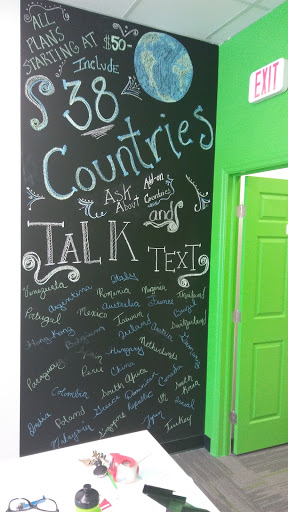 ALL
PLANS
STARTING AT $50-
Include
38
Countries
ASK Add-on
About Countries
and
TALK TEXT
Venezuela Italy
Argentina Romania Nigeria Thailand
Portugal Mexico Australia France Brazil
Hong Kong Taiwan Switzerland
Belgium Ireland Austria
Hungary Netherlands
Paraguay Peru China
Colombia South Africa Canada
Greece Dominican South Korea
India Poland Republic UK Israel
Malaysia Singapore Japan Turkey
EXIT